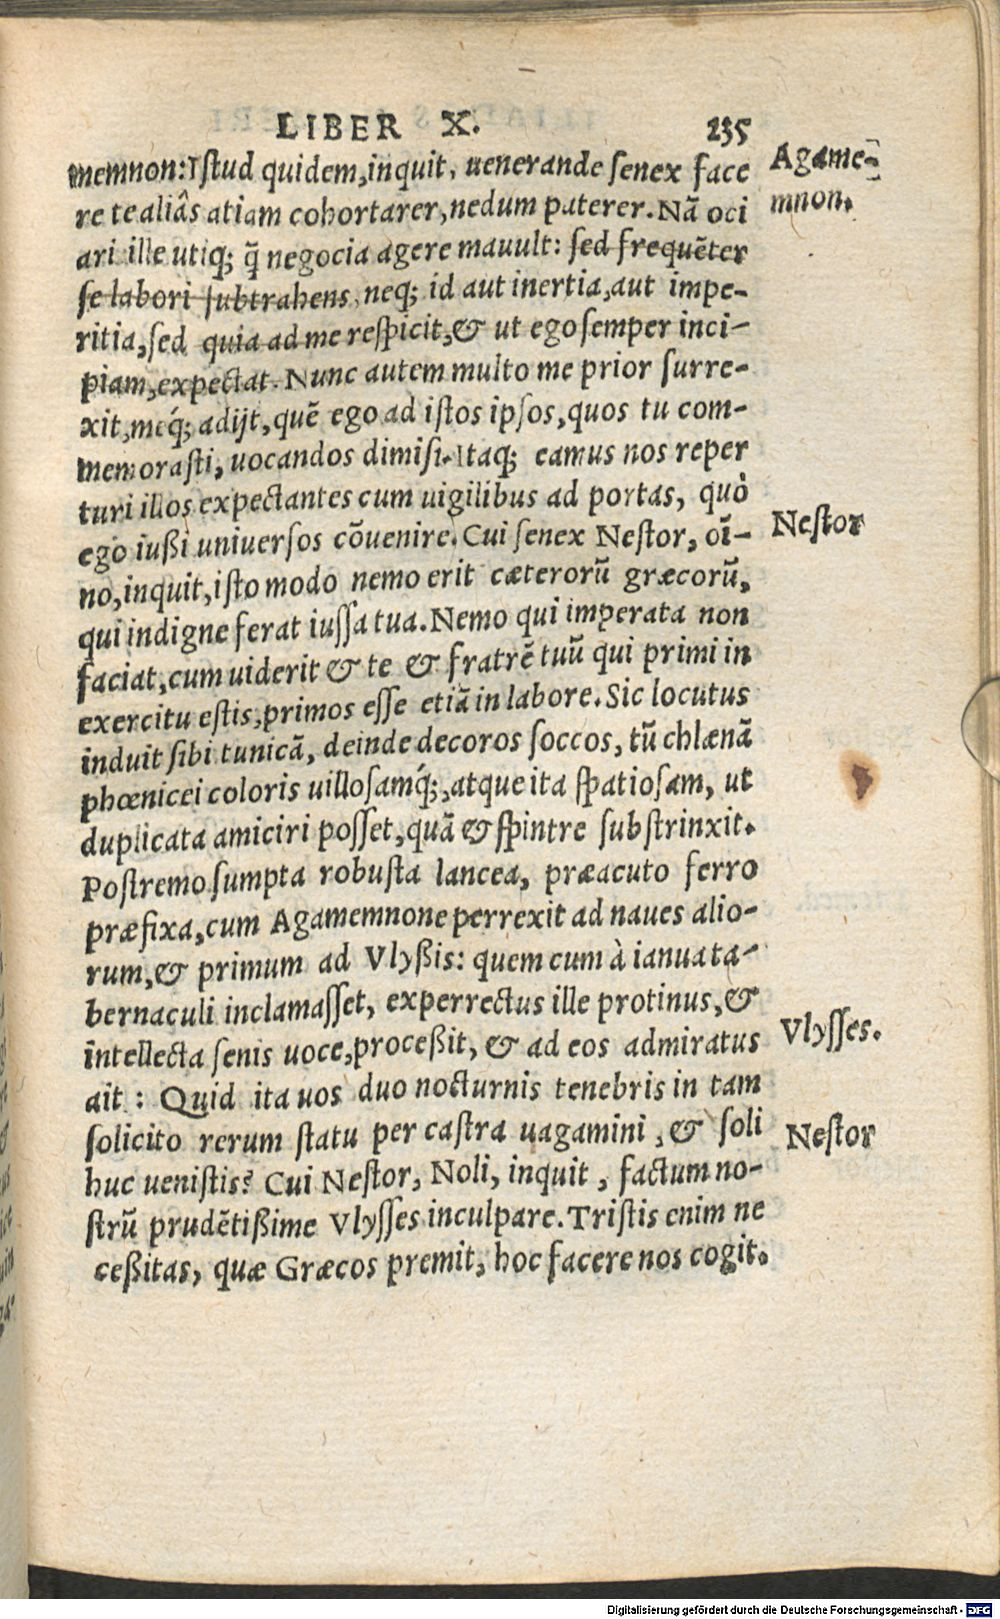 LIBER X. 235
memnon: Istud quidem, inquit, uenerande senex face
Agame-
re te aliâs atiam cohortarer, nedum paterer. Nã oci
mnon.
ari ille utiq; q̃ negocia agere mauult: sed frequẽter
se labori subtrahens, neq; id aut inertia, aut impe-
ritia, sed quia ad me respicit, & ut ego semper inci-
piam, expectat. Nunc autem multo me prior surre-
xit, meq́; adijt, quẽ ego ad istos ipsos, quos tu com-
memorasti, uocandos dimisi. Itaq; eamus nos reper
turi illos expectantes cum uigilibus ad portas, quò
Nestor
ego iußi uniuersos cõuenire. Cui senex Nestor, oĩ-
no, inquit, isto modo nemo erit cæterorũ græcorũ,
qui indigne ferat iussa tua. Nemo qui imperata non
faciat, cum uiderit & te & fratrẽ tuũ qui primi in
exercitu estis, primos esse etiã in labore. Sic locutus
induit sibi tunicã, deinde decoros soccos, tũ chlænã
phœnicei coloris uillosamq́;, atque ita spatiosam, ut
duplicata amiciri posset, quã & spintre substrinxit.
Postremo sumpta robusta lancea, præacuto ferro
præfixa, cum Agamemnone perrexit ad naues alio-
rum, & primum ad Vlyßis: quem cum à ianua ta-
bernaculi inclamasset, experrectus ille protinus, &
intellecta senis uoce, proceßit, & ad eos admiratus
Vlysses.
ait: Quid ita uos duo nocturnis tenebris in tam
solicito rerum statu per castra uagamini, & soli
Nestor
huc uenistis? Cui Nestor, Noli, inquit, factum no-
strũ prudẽtißime Vlysses inculpare. Tristis enim ne
ceßitas, quæ Græcos premit, hoc facere nos cogit.
Digitalisierung gefördert durch die Deutsche Forschungsgemeinschaft - DFG